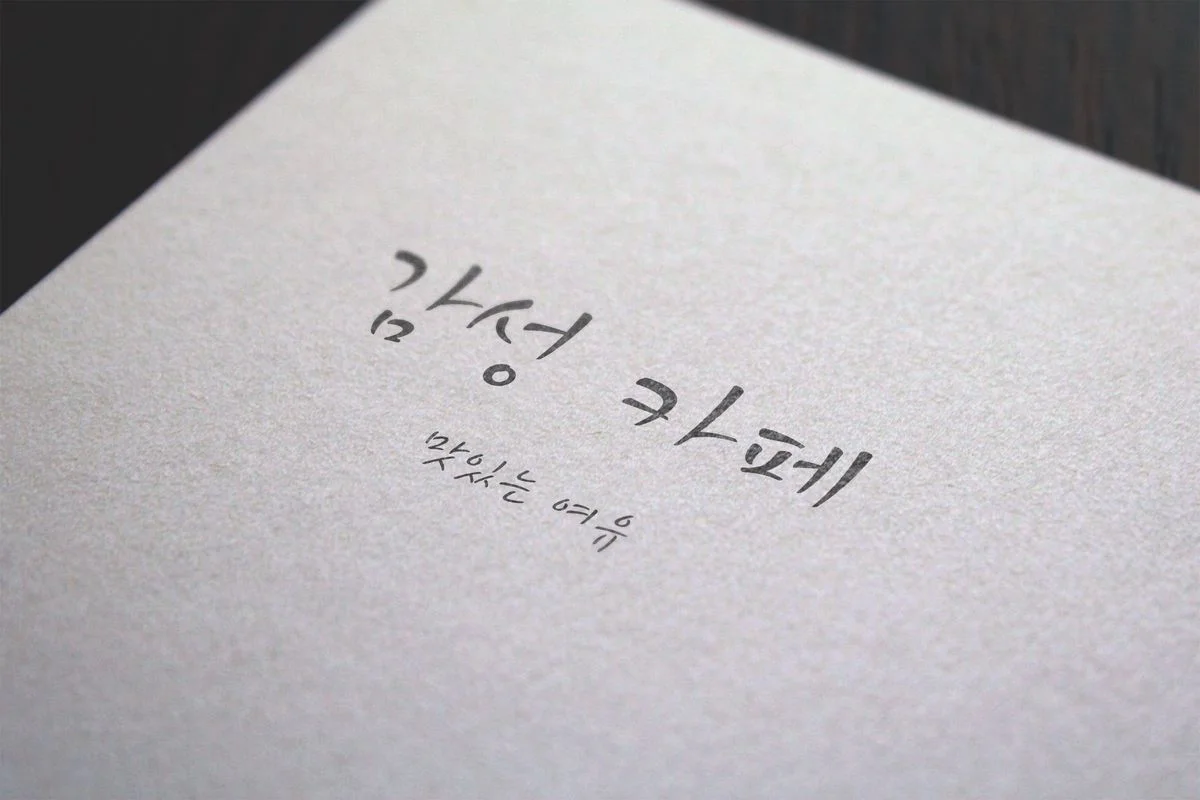 감성 카페
맛있는 여유